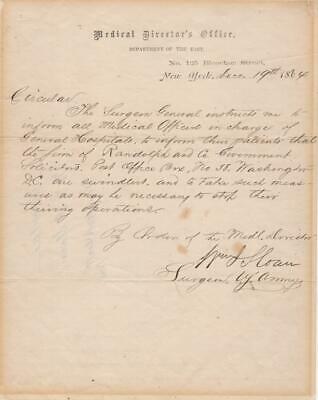 Medical Director's Office,
DEPARTMENT OF THE EAST,
No. 125 Bleecker Street,
New York, Dec. 19th 1864
Circular
The Surgeon General instructs me to
inform all Medical Officers in charge of
General Hospitals, to inform their patients that
the firm of Randolph and Co Government
Solicitors, Post Office Box, No 38, Washington
D.C. are swindlers, and to take such meas
ures as may be necessary to stop their
thieving operations.
By Order of the Medl. Director
Wm J Sloan
Surgeon U.S. Army